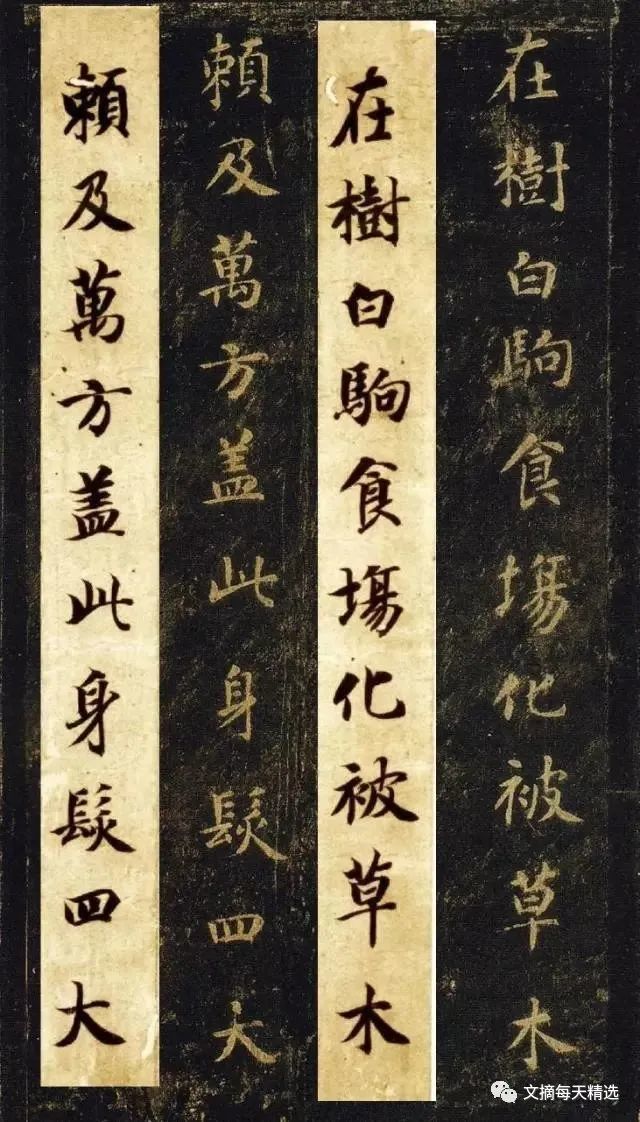 在樹白駒食塲化被草木
在樹白駒食塲化被草木
頼及萬方盖此身髮四大
頼及萬方盖此身髮四大
文摘每天精选